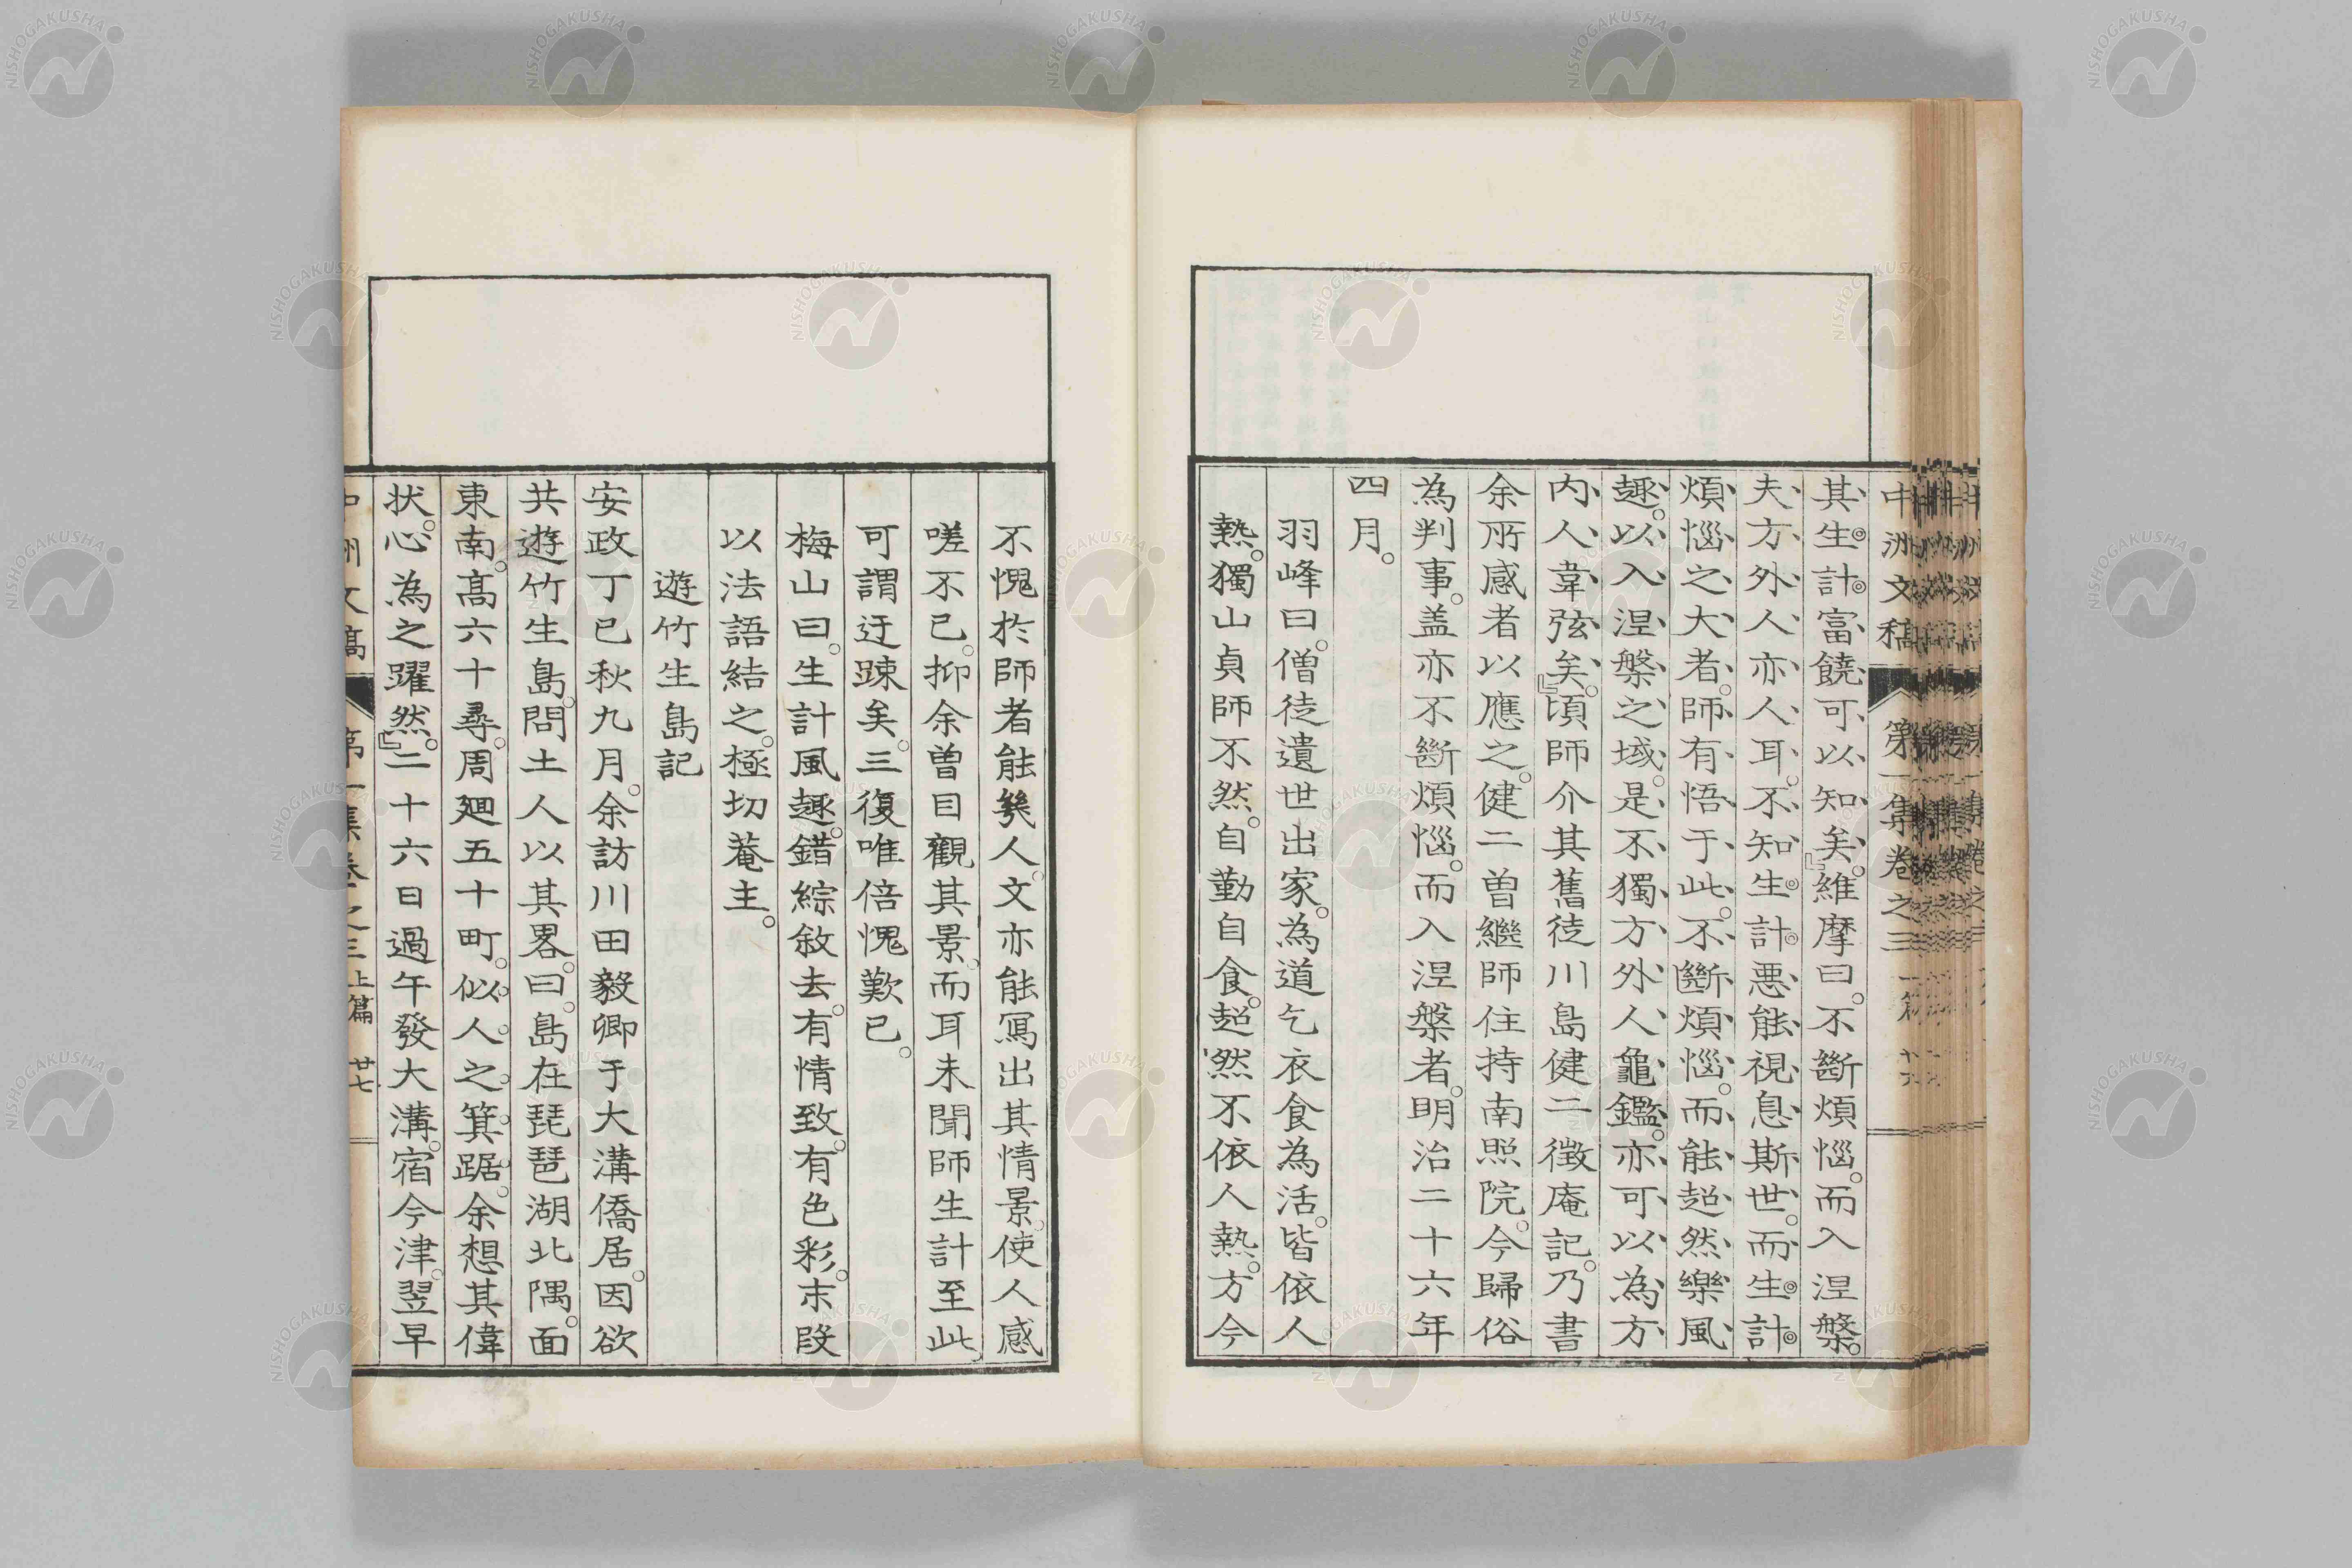 中洲文稿 第一集卷之三
其生計富饒可以知矣。』維摩曰。不斷煩惱。而入涅槃。
夫方外人亦人耳。不知生計。悪能視息斯世。而生計
煩惱之大者。師有悟于此。不斷煩惱。而能超然樂風
趣。以入涅槃之域。是不獨方外人龜鑑。亦可以為方
内人韋弦矣。』頃師介其舊徒川島健二徴庵記。乃書
余所感者以應之。健二曽繼師住持南照院。今歸俗
為判事。盖亦不斷煩惱。而入涅槃者。明治二十六年
四月。
羽峰曰。僧徒遺世出家。為道乞衣食為活。皆依人
熱。獨山貞師不然。自勤自食。超然不依人熱。方今
不愧於師者能幾人。文亦能寫出其情景。使人感
嗟不已。抑余曽目觀其景。而耳未聞師生計至此。
可謂迂踈矣。三復唯倍愧歎已。
梅山曰。生計風趣。錯綜敘去。有情致。有色彩。末段
以法語結之。極切菴主。
遊竹生島記
安政丁巳秋九月。余訪川田毅卿于大溝僑居。因欲
共遊竹生島。問土人以其畧。曰。島在琵琶湖北隅。面
東南。高六十尋。周廻五十町。似人之箕踞。余想其偉
状。心為之躍然。』二十六日過午發大溝。宿今津。翌早
中洲文稿 第一集卷之三 上篇 廿七
NISHOGAKUSHA